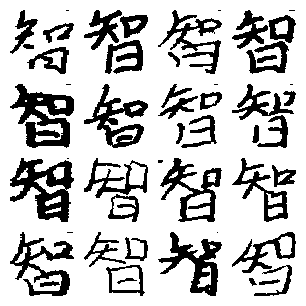 智智智智
智智智智
智智智智
智智智智